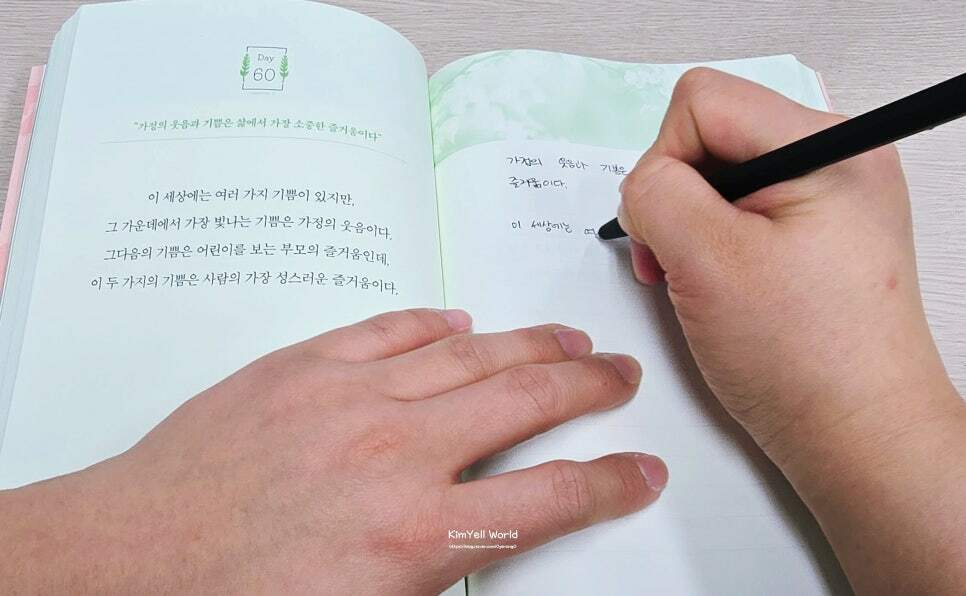 Day
60
"가정의 웃음과 기쁨은 삶에서 가장 소중한 즐거움이다"
이 세상에는 여러 가지 기쁨이 있지만,
그 가운데에서 가장 빛나는 기쁨은 가정의 웃음이다.
그다음의 기쁨은 어린이를 보는 부모의 즐거움인데,
이 두 가지의 기쁨은 사람의 가장 성스러운 즐거움이다.
가정의 웃음과 기쁨은
즐거움이다.
이 세상에는 여
KimYell World